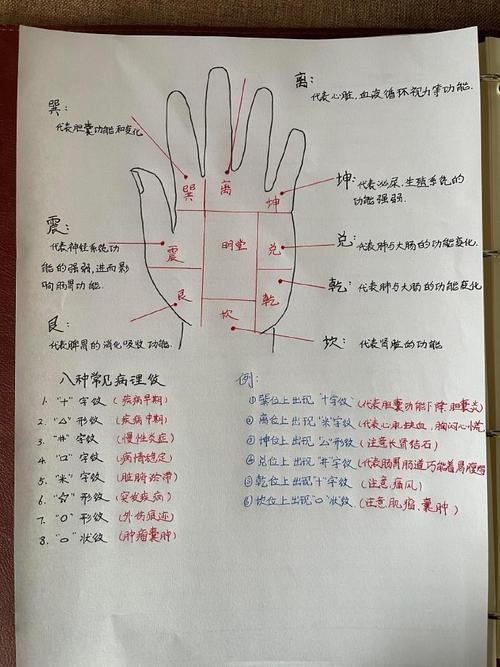 离:
代表心脏,血液循环视力等功能.
巽:
代表胆囊功能和变化
坤: 代表泌尿,生殖系统的
功能强弱.
震:
代表神经系统功
能的强弱,进而影
响肠胃功能.
兑: 代表肺与大肠的功能变化.
乾: 代表肺与大肠的功能变化
艮:
代表脾胃的消化吸收功能.
坎: 代表肾脏的功能
巽 离 坤
震 明堂 兑
艮 坎 乾
八种常见病理纹
1. "十"字纹 (疾病早期)
2. "△"形纹 (疾病中期)
3. "井"字纹 (慢性炎症)
4. "口"字纹 (病情稳定)
5. "米"字纹 (脏腑瘀滞)
6. "☆"形纹 (突发疾病)
7. "O"形纹 (外伤痕迹)
8. "o"状纹 (肿瘤囊肿)
例:
①巽位上出现"十字纹"(代表胆囊功能下降.胆囊炎)
②离位上出现"米"字纹(代表心肌缺血,胸闷心慌
③坤位上出现"△"形纹 (注意长肾结石)
④兑位上出现"井字纹 (代表肠胃肠道
⑤乾位上出现"十"字纹 (注意.痛风)
⑥坎位上出现"o"状纹 (注意,肌瘤.囊肿)